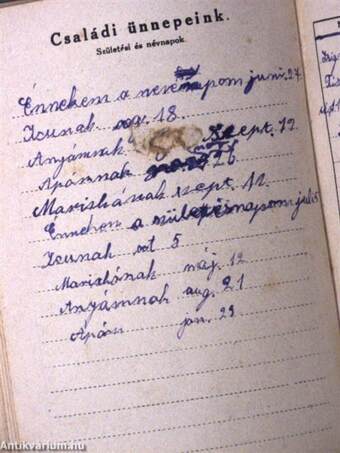 Családi ünnepeink.
Születési és névnapok.
Ennekem a nevenapom juni. 27
Icunak aug. 18.
Anyámnak szept. 12
Apámnak 26
Mariskának szept. 12.
Ennekem a születésnapom juli 5
Icunak okt 5
Mariskának máj. 12
Anyámnak aug. 21
Apám jan. 29
Antikvárium.hu